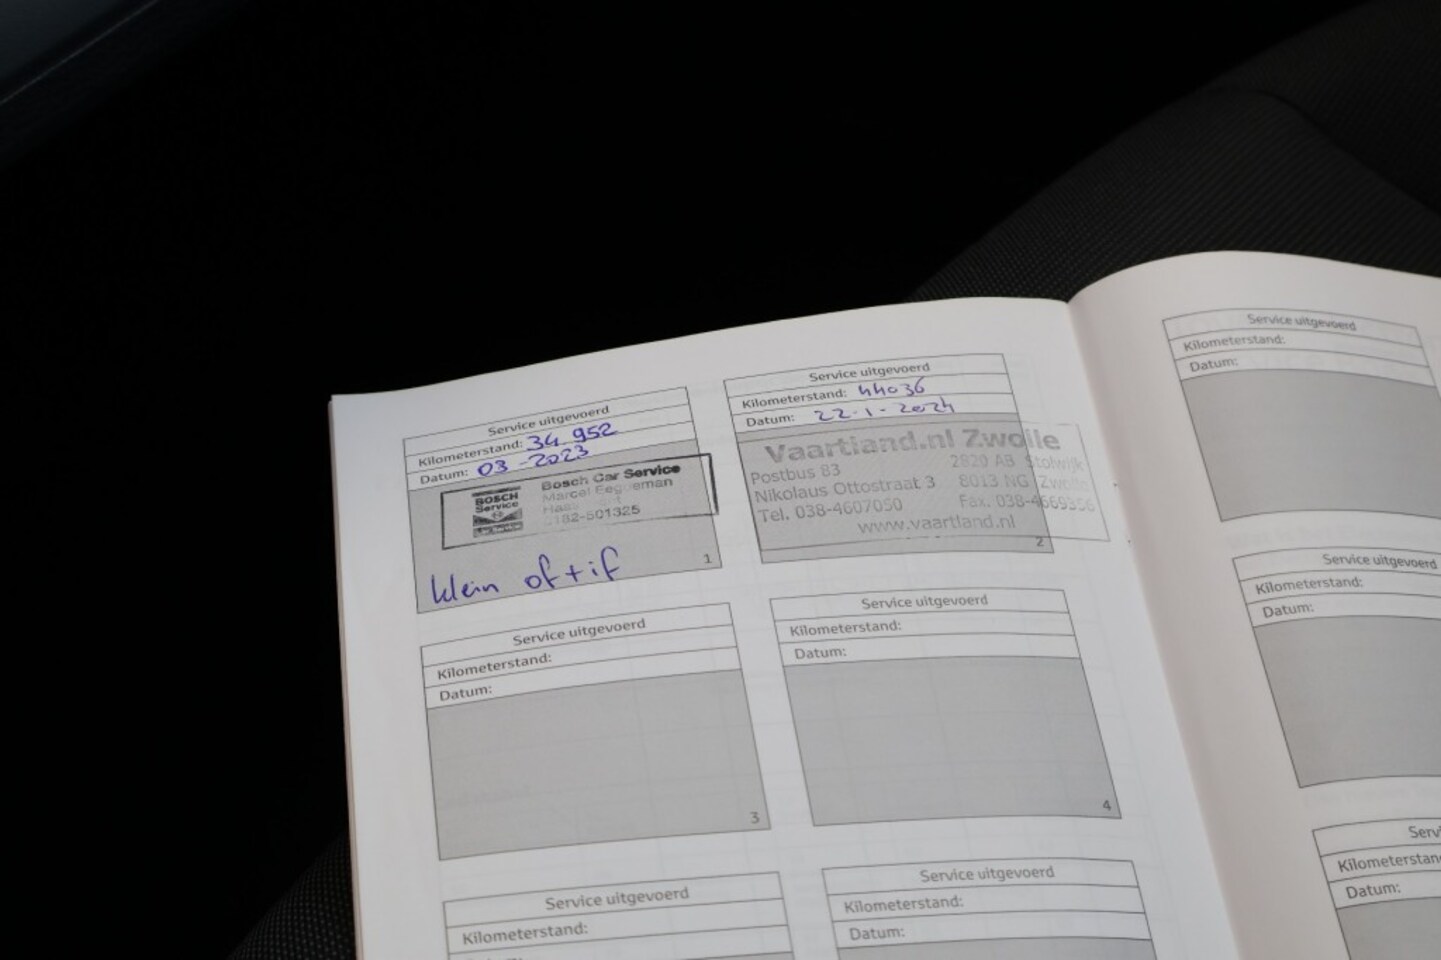 Service uitgevoerd
Kilometerstand: 34 952
Datum: 03 - 2023
BOSCH
Service
Car Service
Bosch Car Service
Marcel Eegdeman
0182-501325
klein of + if
1
Service uitgevoerd
Kilometerstand: 44036
Datum: 22-1-2024
Vaartland.nl Zwolle
Postbus 83 2820 AB Stolwijk
Nikolaus Ottostraat 3 8013 NG Zwolle
Tel. 038-4607050 Fax. 038-4669356
www.vaartland.nl
2
Service uitgevoerd
Kilometerstand:
Datum:
3
Service uitgevoerd
Kilometerstand:
Datum:
4
Service uitgevoerd
Kilometerstand:
Service uitgevoerd
Kilometerstand:
Datum:
Service uitgevoerd
Kilometerstand:
Datum:
Service uitgevoerd
Kilometerstand:
Datum:
Servi
Kilometerstan
Datum: